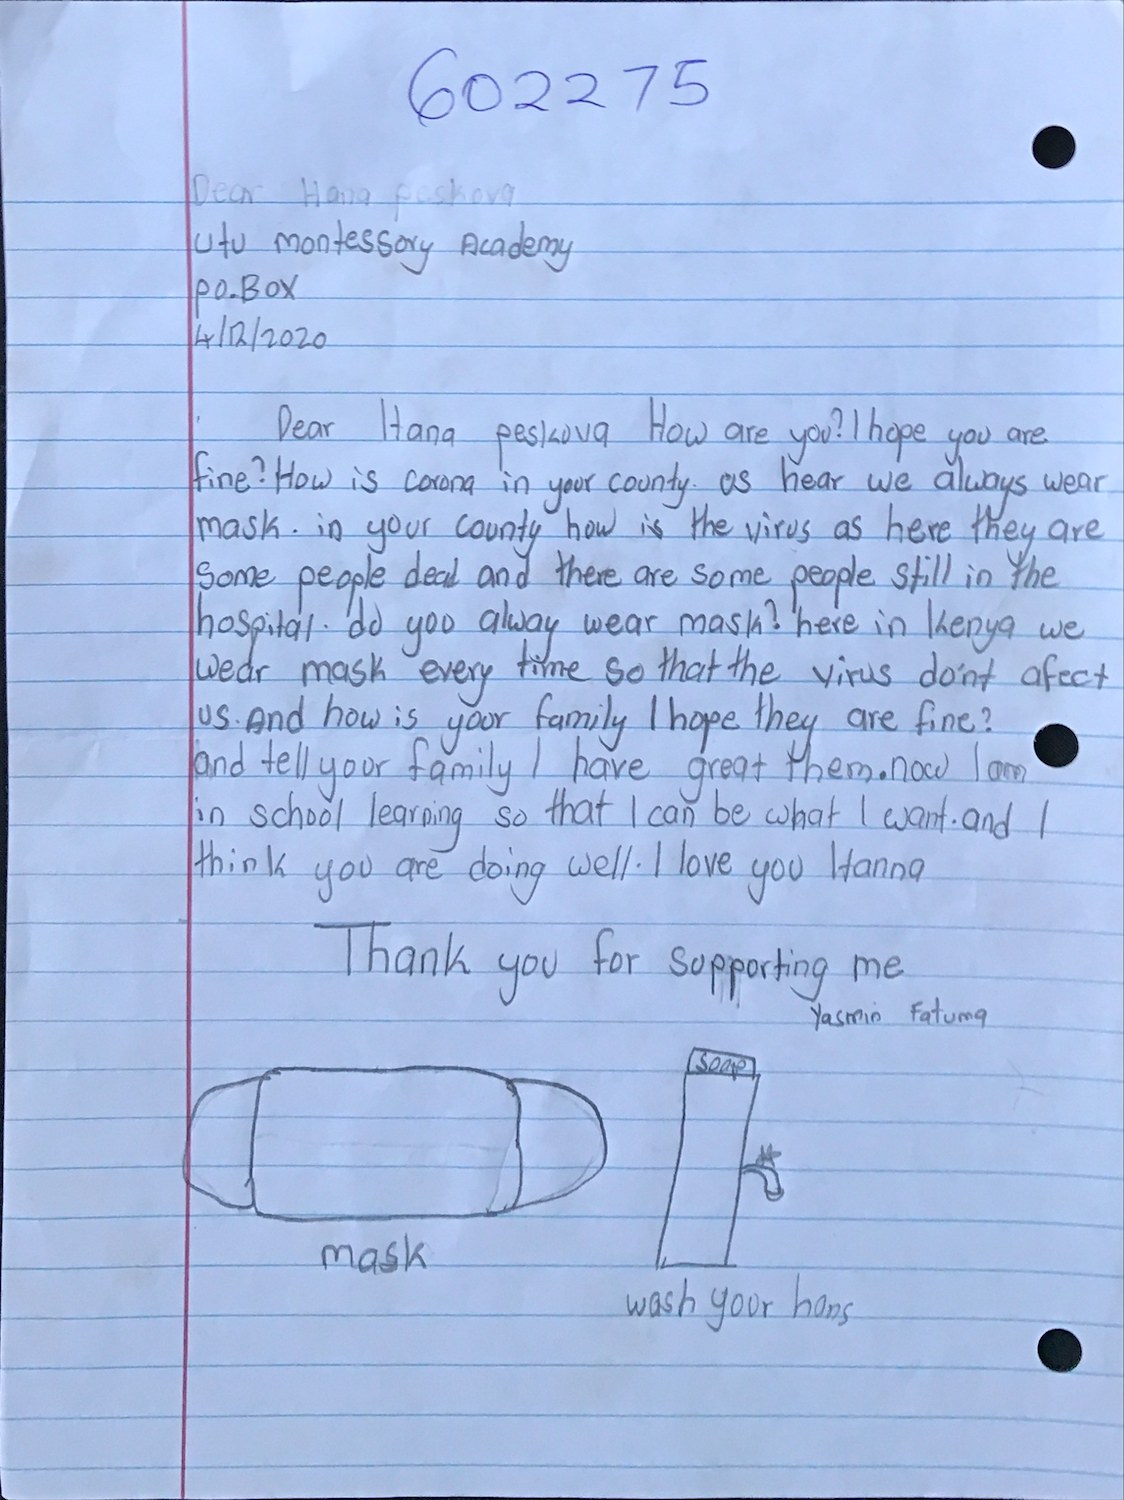 602275
Dear Hana peskova
Utu montessory Academy
po.Box
4/12/2020
Dear Hana peskova How are you? I hope you are
fine? How is corona in your county. as hear we always wear
mask. in your county how is the virus as here they are
some people dead and there are some people still in the
hospital. do you alway wear mask? here in Kenya we
wear mask every time so that the virus do'nt afect
us. And how is your family I hope they are fine?
and tell your family I have great them. now I am
in school learning so that I can be what I want. and I
think you are doing well. I love you Hanna
Thank you for supporting me
Yasmin Fatuma
soap
mask
wash your hans